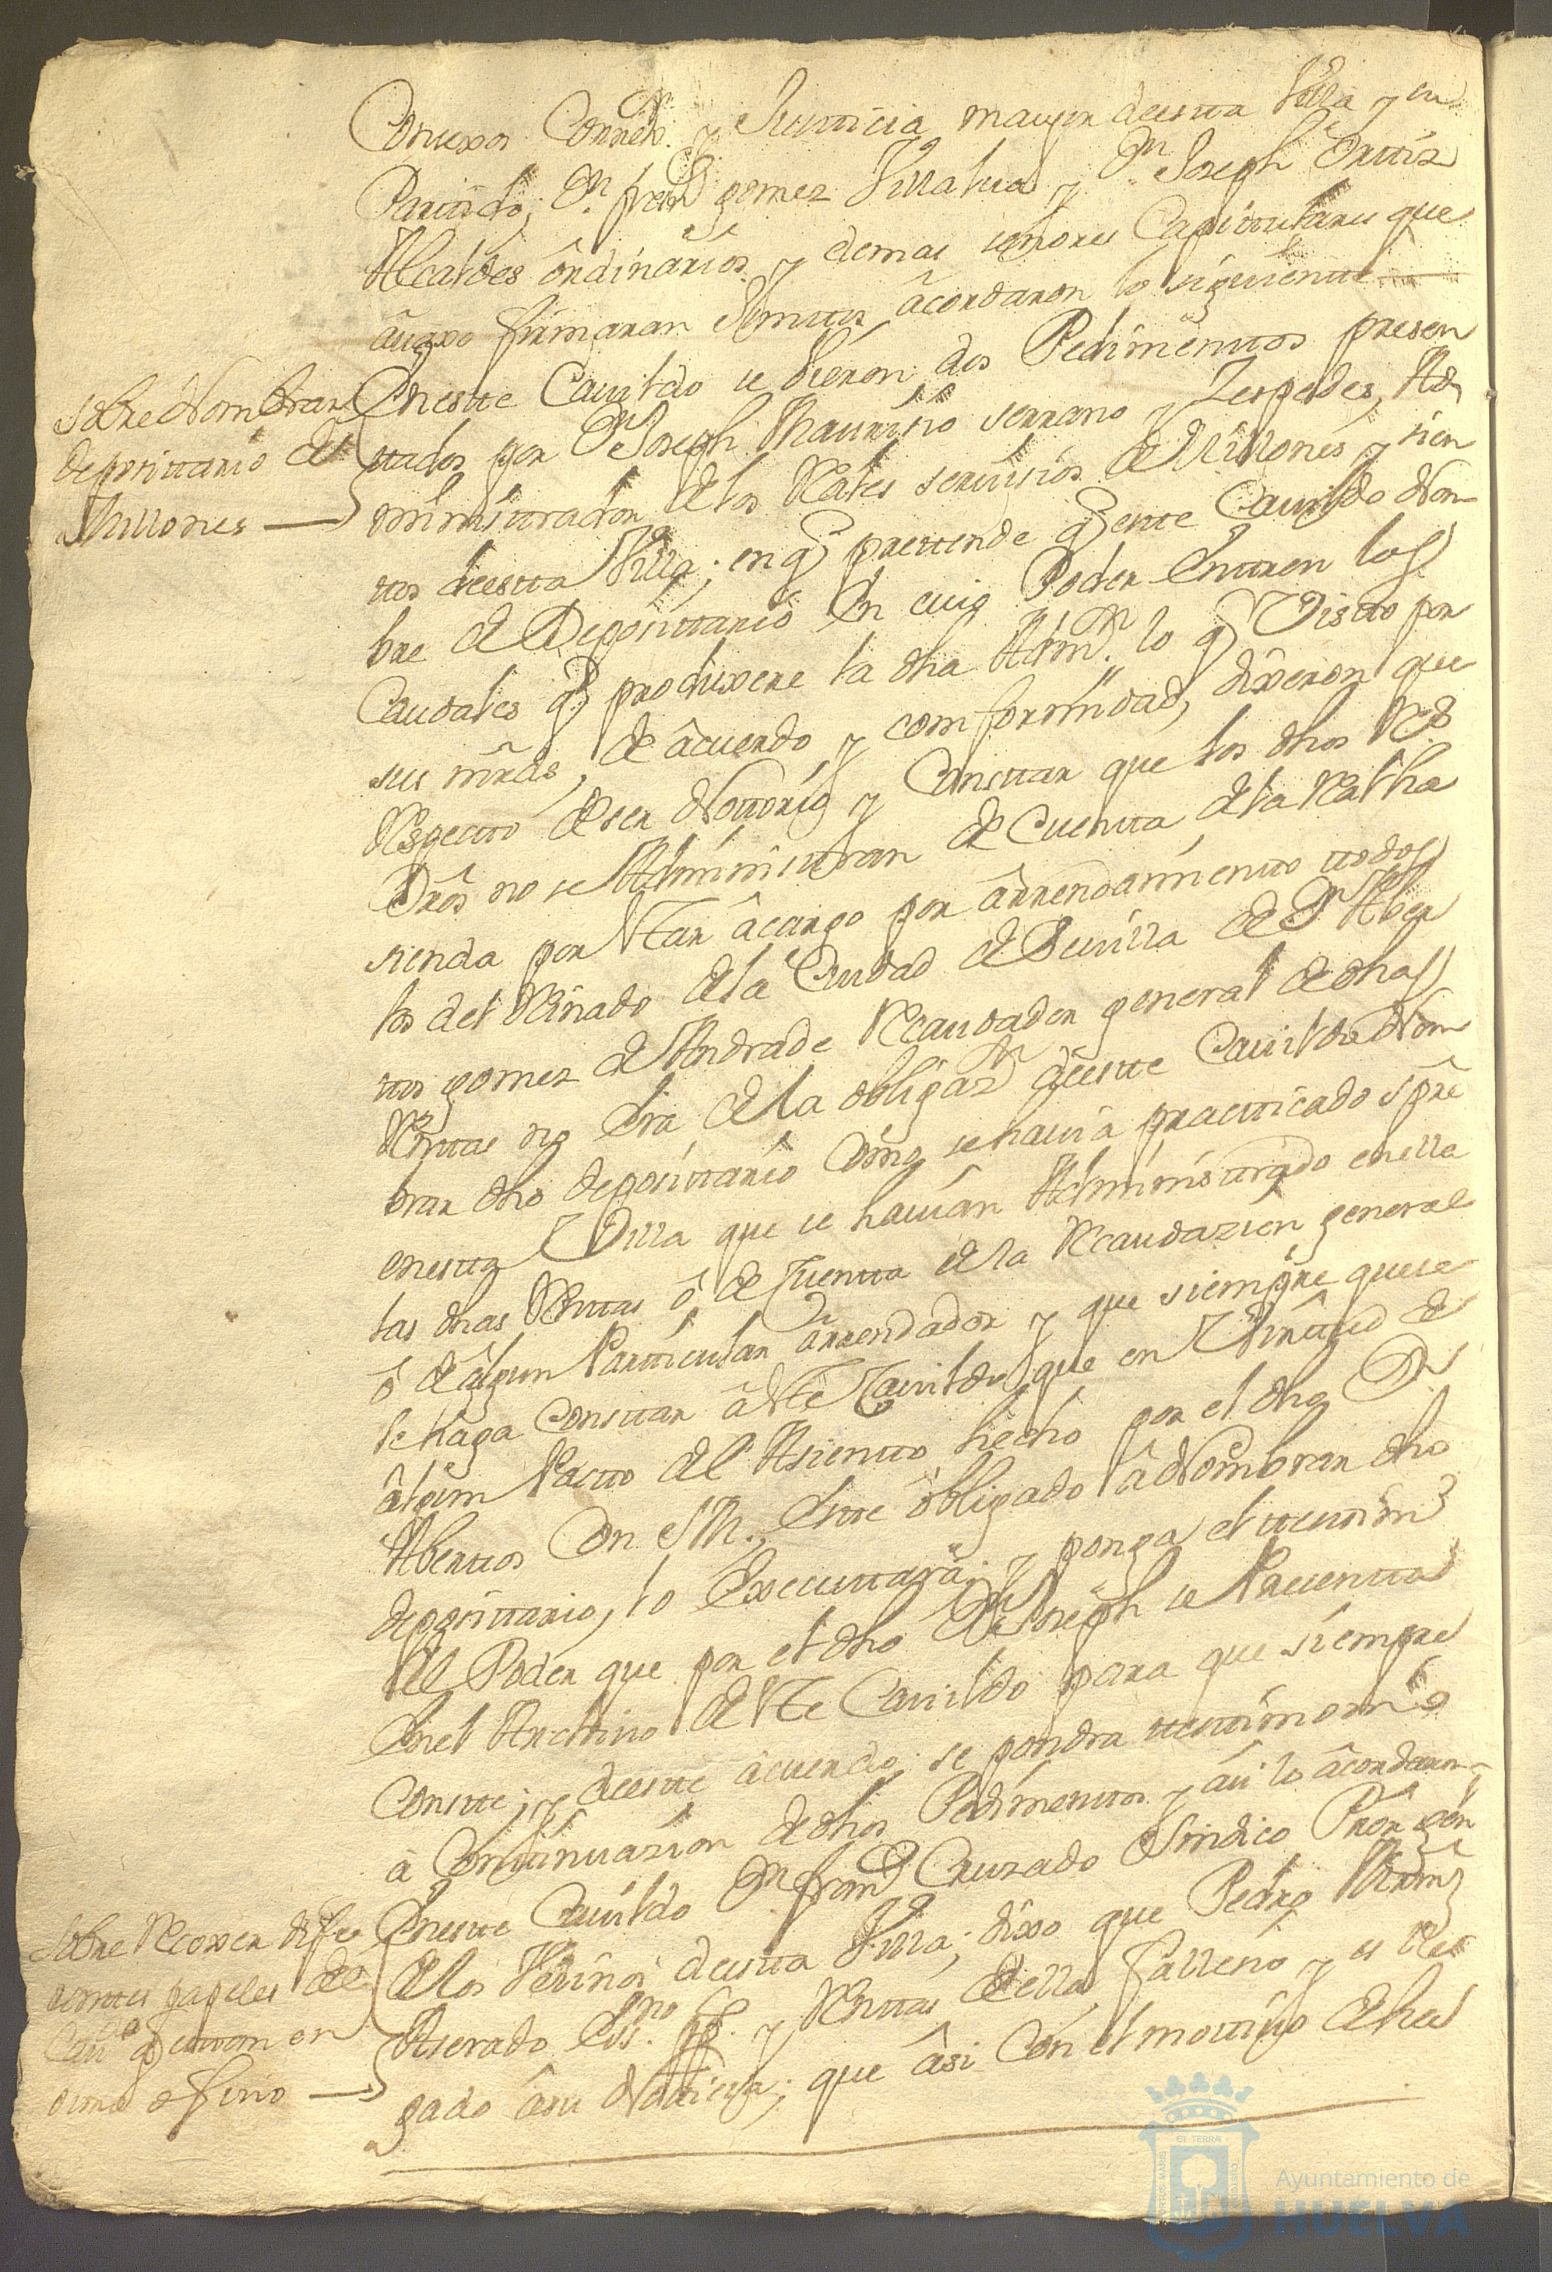 Conexos Corrèx.or y Justicia mayor deesta Villa y su
Partido; Dn. fran.co gomez Villalua y Dn. Joseph Orttiz
Alcaldes ôrdinarios y demas señores Capittulares que
âuaxo firmaran Jnuttos âcordaron lo siguiente
Sobre Nombrar
depositario de
Millones
Enestte Cauildo se bieron dos Pedimenttos presen
ttados por Dn. Joseph Maurisio serrano y Zespedes, Ad
ministrador delos Reales seruisios de Millones y sien
ttos deestta Villa; en q prettende q estte Cauildo Nom
bre de Deposittario En cuio Poder Enttren los
Caudales q produxere la dha Adm.on lo q Visto por
sus mrds, de âcuerdo y comformidad, dixeron que
Respectto de ser Nottorio y Consttar que los dhos Rs
Dros no se Administtran de Cuentta dela Real ha
sienda por Estar âcargo por ârrendamientto ttodos
los del Reinado dela Ciudad de Seuilla de Dn. Alber
tto gomez de Andrade Recaudador general de dhas
Renttas no Era dela obligaz.on deestte Cauildo Nom
brar dho deposittario Como se hauia practticado spre
enestta Villa que se hauian Administtrado enella
las dhas Renttas ô de Cuentta dela Recaudazion general
ô de âlgun Partticular ârrendador y que siempre que se
le haga Consttar â Este Cauildo que en Virttud de
âlgun Pactto del Asientto hecho por el dho Dn.
Alberttos Con S M., Estte ôbligado â Nombrar dho
deposittario, lo Executtarà; y ponga el ttesttim.o
del Poder que por el dho Dn. Joseph se Presentta
Enel Archiuo de Este Cauildo para que siempre
Constte; y deestte acuerdo se pondra ttesttimonio
â Continuazion de dhos Pedimenttos y âsi lo âcordaron
Sobre Recoxer dife
renttes papeles del
Cau.o q estan en
su ofisio
Enestte Cauildo Dn. fran.co Cruzado Sindico Prôr gen
delos Vesinos deestta Villa; dixo que Pedro
Aserado Ess.no pp.co y Renttas deella fallesio y es lle
gado âsu Notticia; que âsi Con el mottiuo de ha
Ayuntamiento de
HUELVA